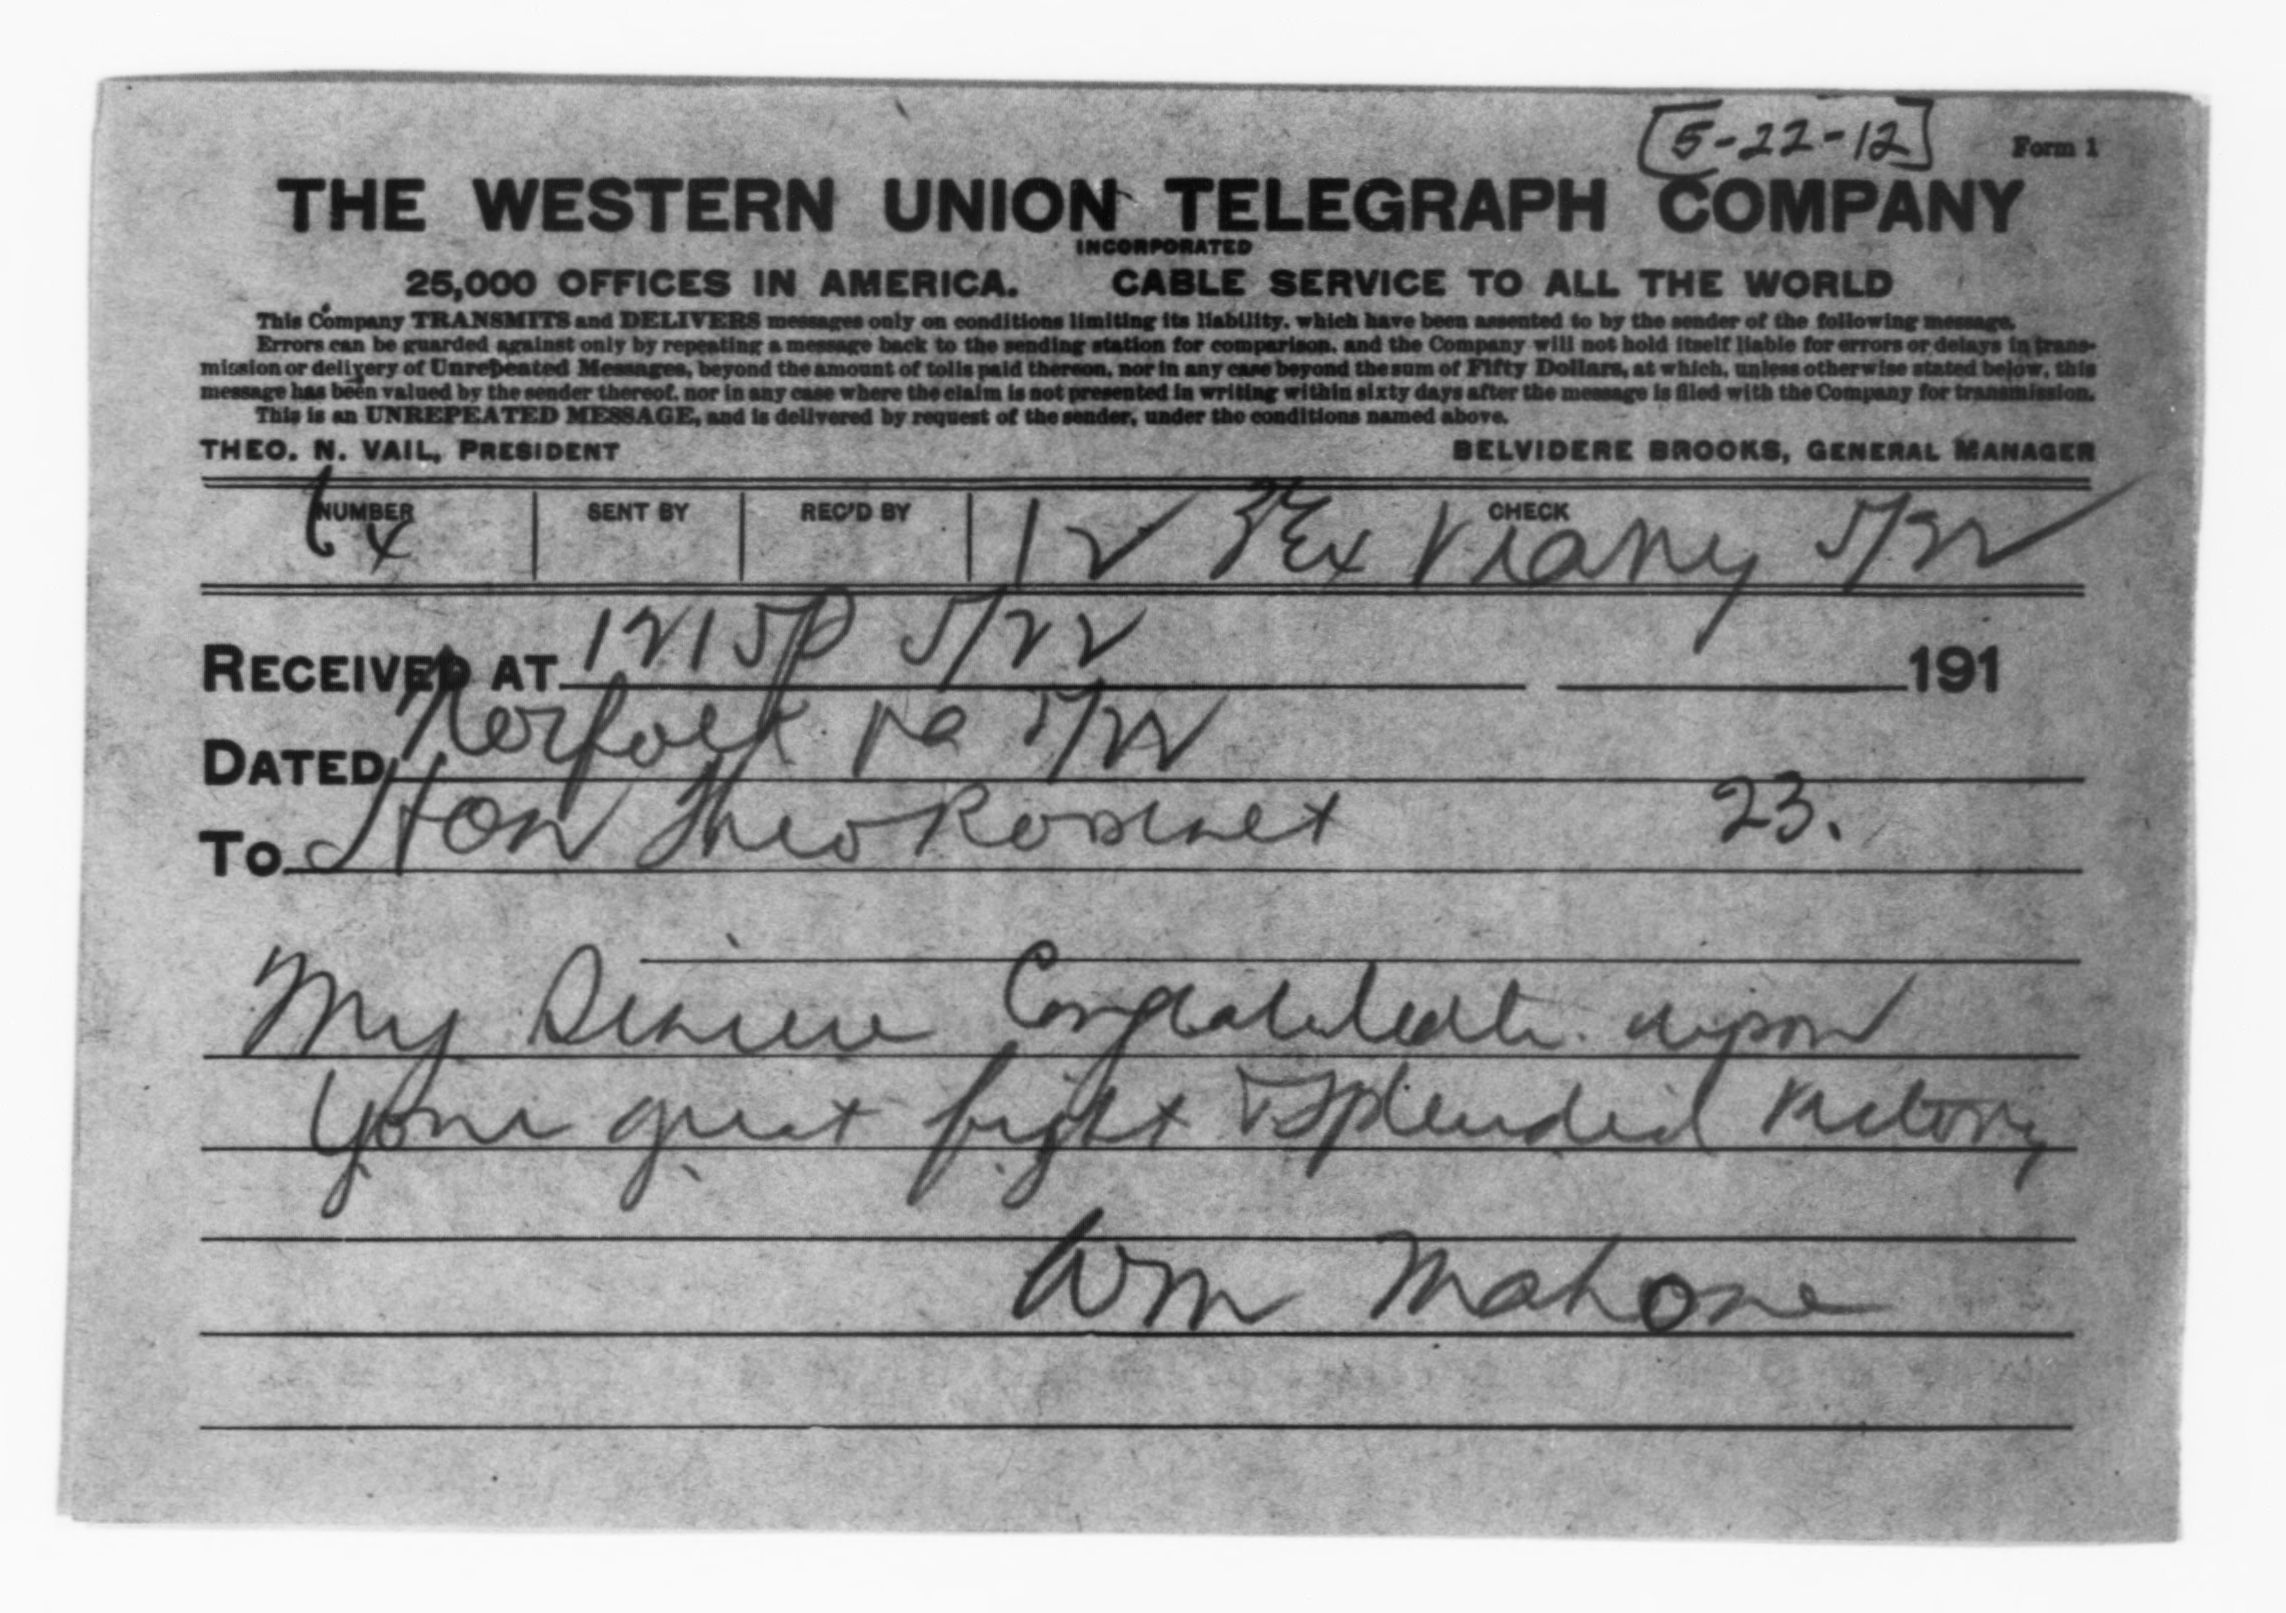 [5-22-12] Form 1
THE WESTERN UNION TELEGRAPH COMPANY
INCORPORATED
25,000 OFFICES IN AMERICA. CABLE SERVICE TO ALL THE WORLD
This Company TRANSMITS and DELIVERS messages only on conditions limiting its liability, which have been assented to by the sender of the following message.
Errors can be guarded against only by repeating a message back to the sending station for comparison, and the Company will not hold itself liable for errors or delays in trans-
mission or delivery of Unrepeated Messages, beyond the amount of tolls paid thereon, nor in any case beyond the sum of Fifty Dollars, at which, unless otherwise stated below, this
message has been valued by the sender thereof, nor in any case where the claim is not presented in writing within sixty days after the message is filed with the Company for transmission.
This is an UNREPEATED MESSAGE, and is delivered by request of the sender, under the conditions named above.
THEO. N. VAIL, PRESIDENT BELVIDERE BROOKS, GENERAL MANAGER
NUMBER SENT BY REC'D BY CHECK
12 5/22
RECEIVED AT 1215P 5/22 191
DATED Norfolk Va 5/22
To Hon Theo Rosevelt 23.
My Sincere Congratulatn. upon
Your great fight & Splendid Victory
Wm Mahone